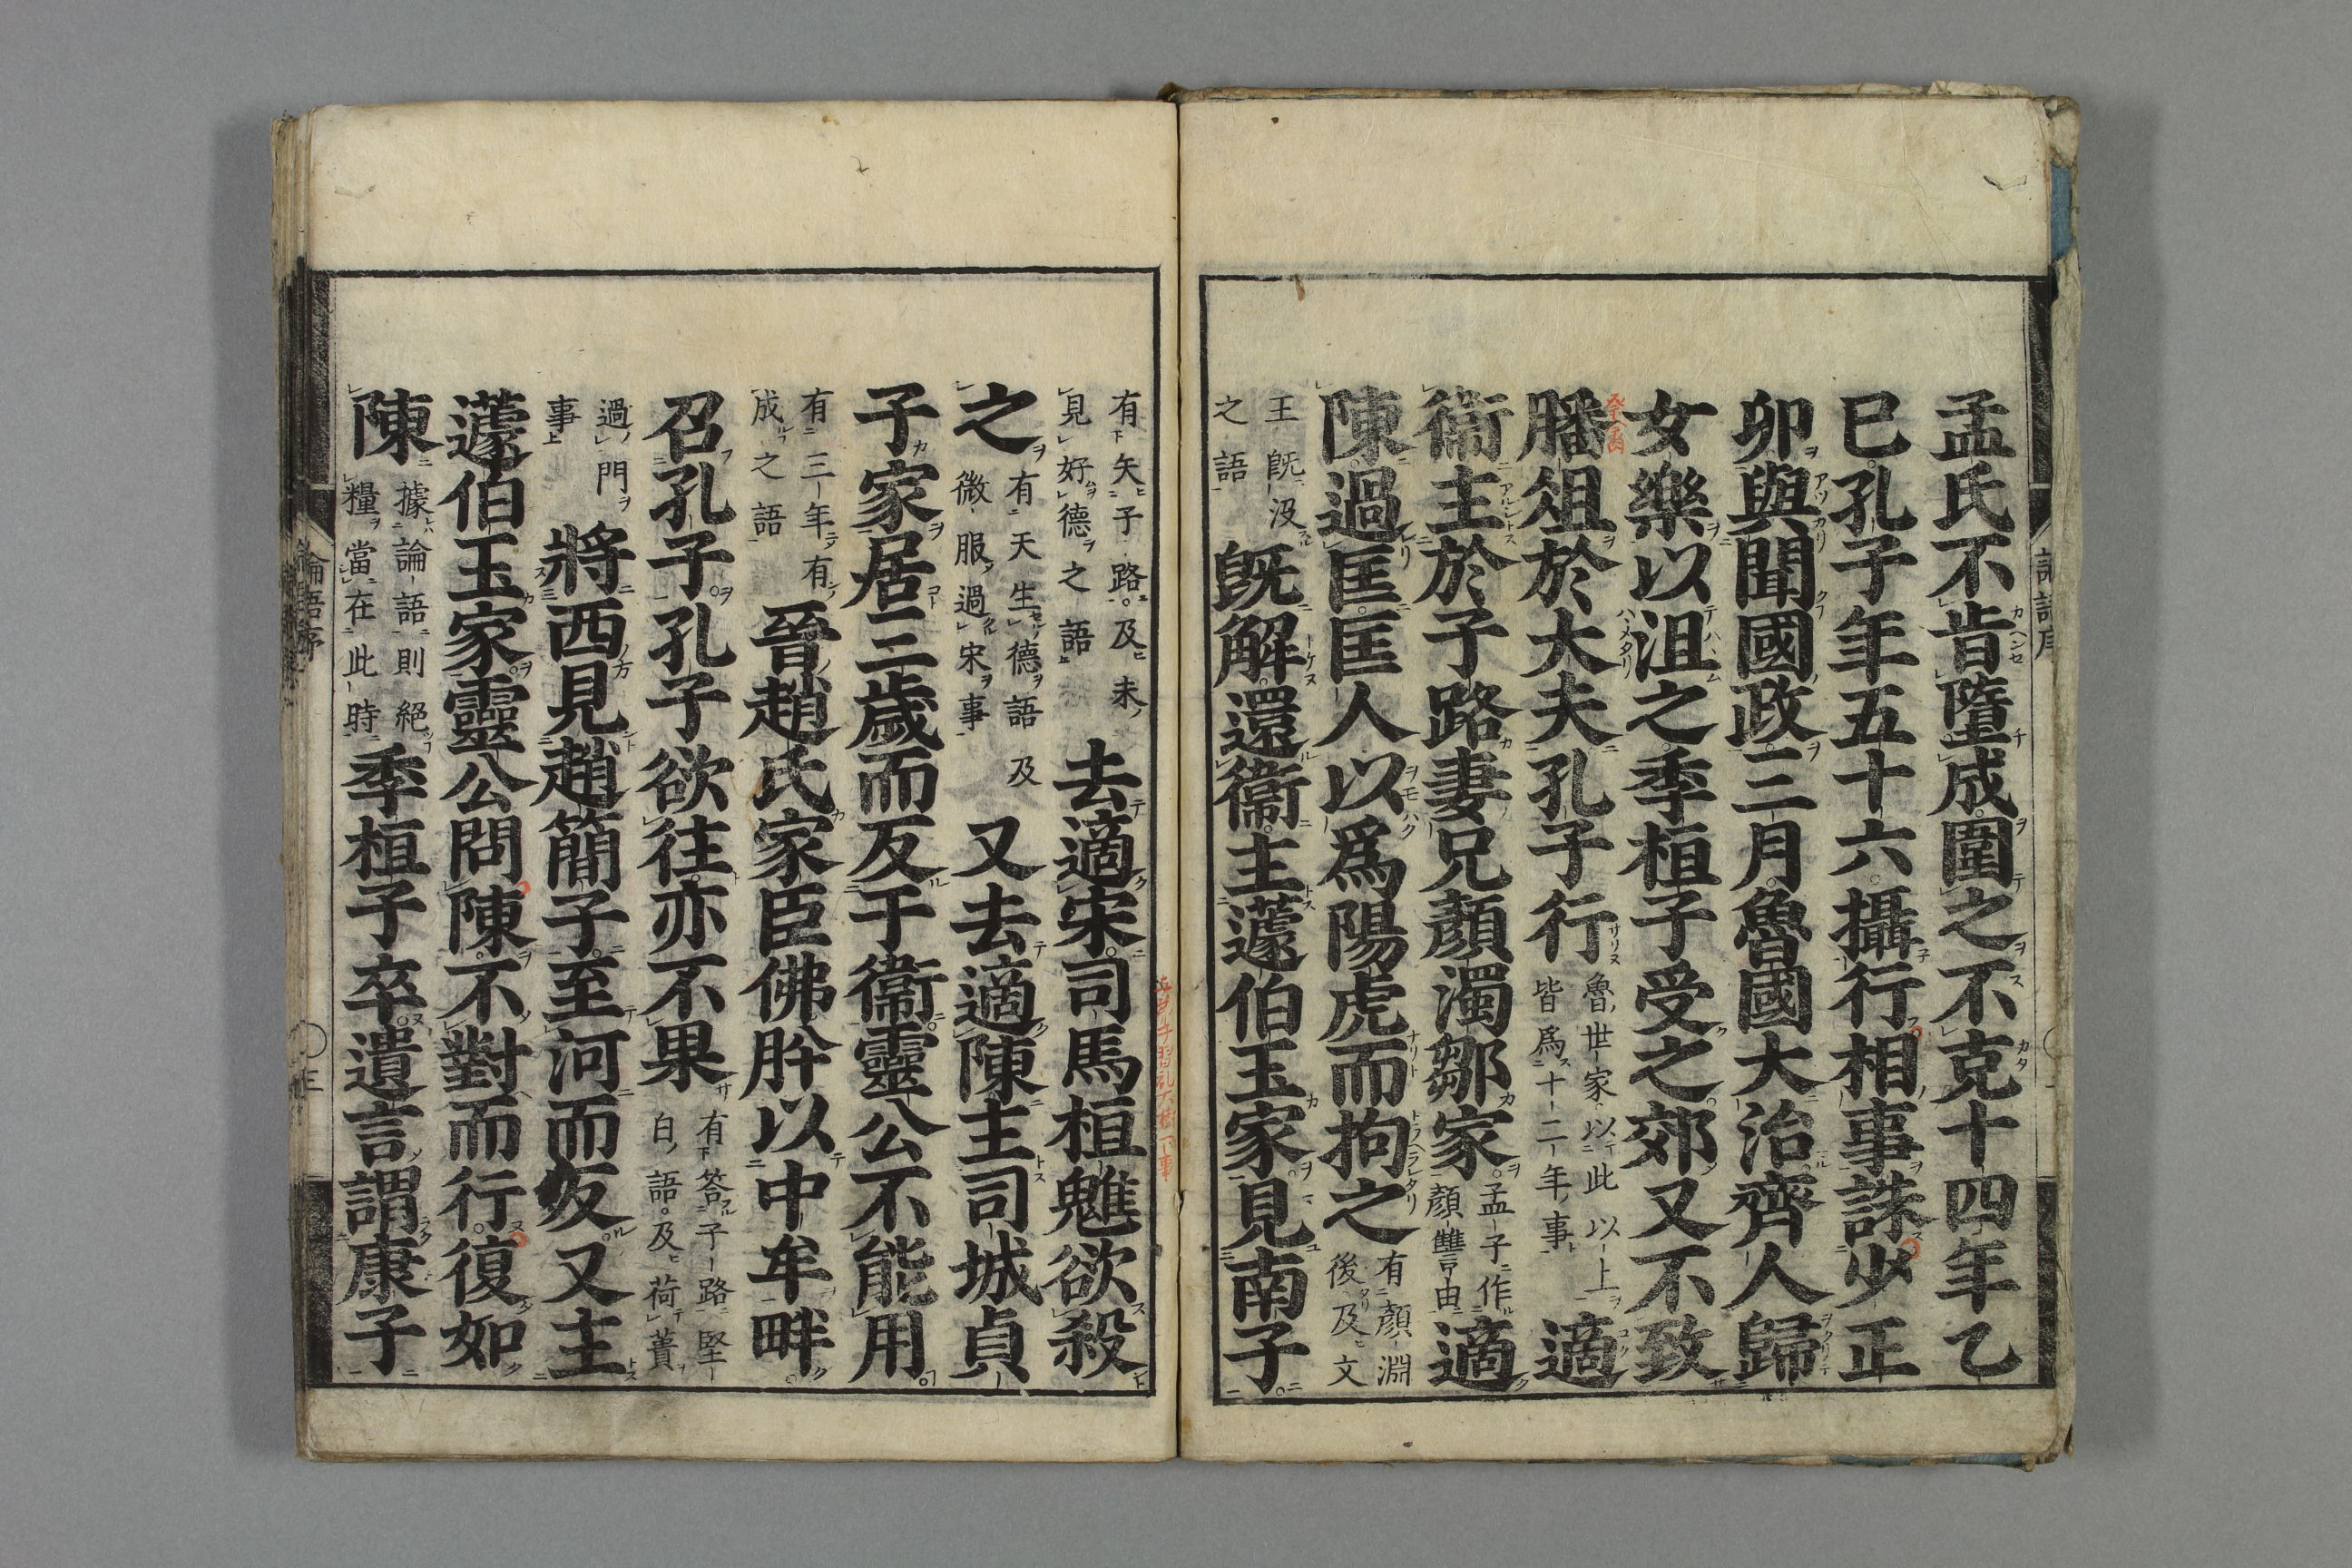 孟氏不肯墮成圍之不克十四年乙
巳孔子年五十六攝行相事誅少正
卯與聞國政三月魯國大治齊人歸
女樂以沮之季桓子受之郊又不致
膰俎於大夫孔子行魯世家以此以上皆爲十二年事適
衞主於子路妻兄顏濁鄒家孟子作顏讐由適
陳過匡匡人以爲陽虎而拘之有顏淵後及文
王旣沒之語旣解還衞主蘧伯玉家見南子
有矢子路及未見好德之語去適宋司馬桓魋欲殺
之有天生德語及微服過宋事又去適陳主司城貞
子家居三歲而反于衞靈公不能用
有三年有成之語晉趙氏家臣佛肸以中牟畔
召孔子孔子欲往亦不果有答子路堅白語及荷蕢
過門事將西見趙簡子至河而反又主
蘧伯玉家靈公問陳不對而行復如
陳據論語則絕糧當在此時季桓子卒遺言謂康子
論語序
三